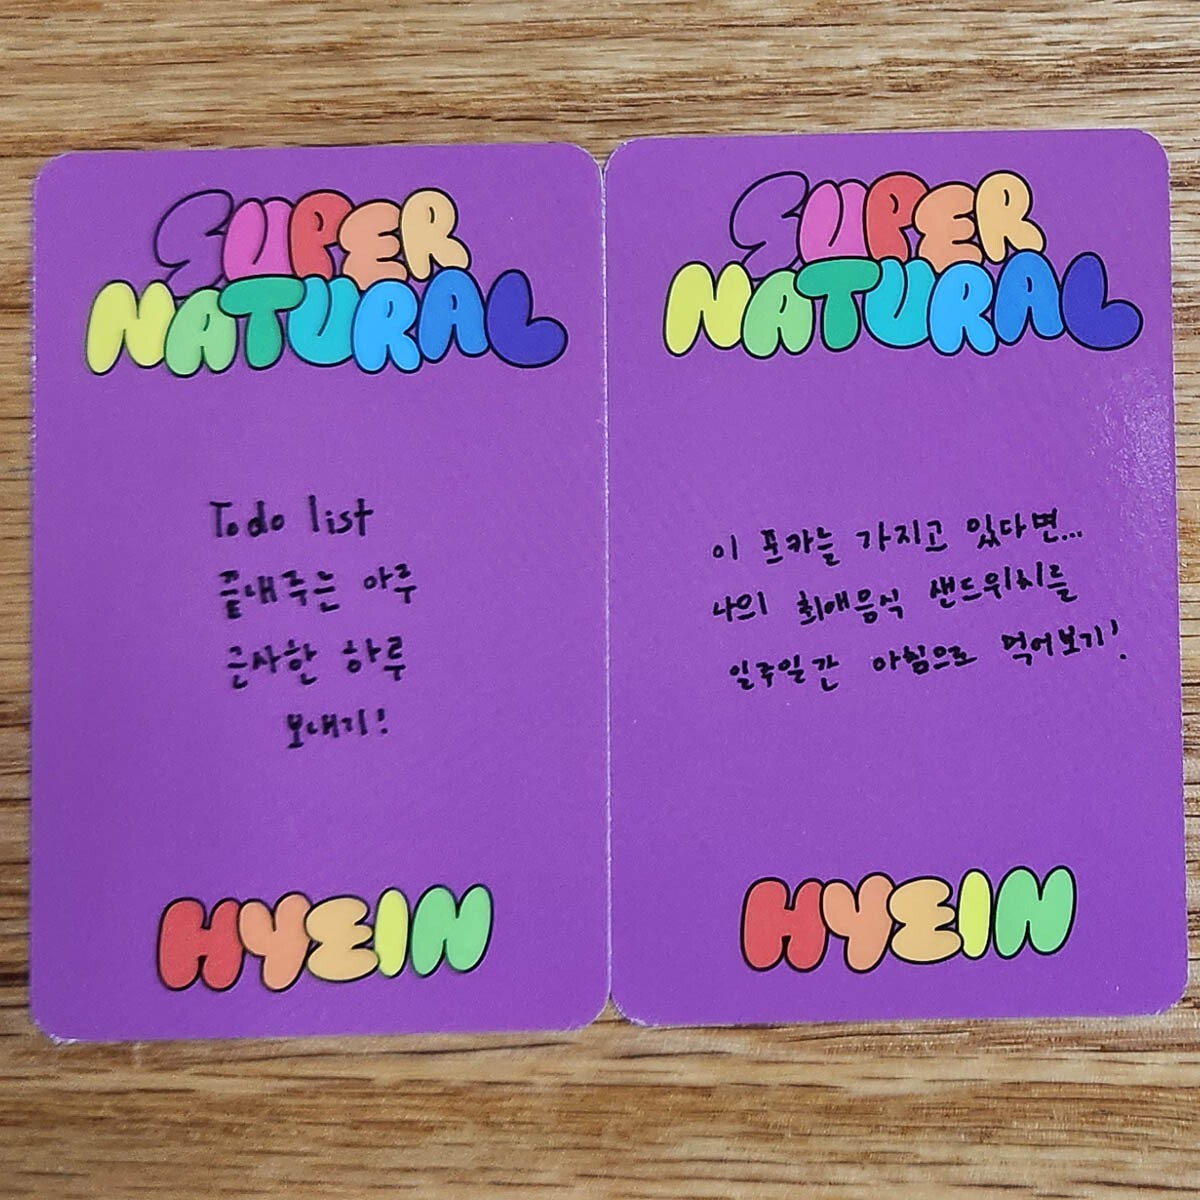 SUPER
NATURAL
To do list
끝내주는 하루
근사한 하루
보내기!
HYEIN
SUPER
NATURAL
이 포카를 가지고 있다면...
나의 최애음식 샌드위치를
일주일간 아침으로 먹어보기!
HYEIN